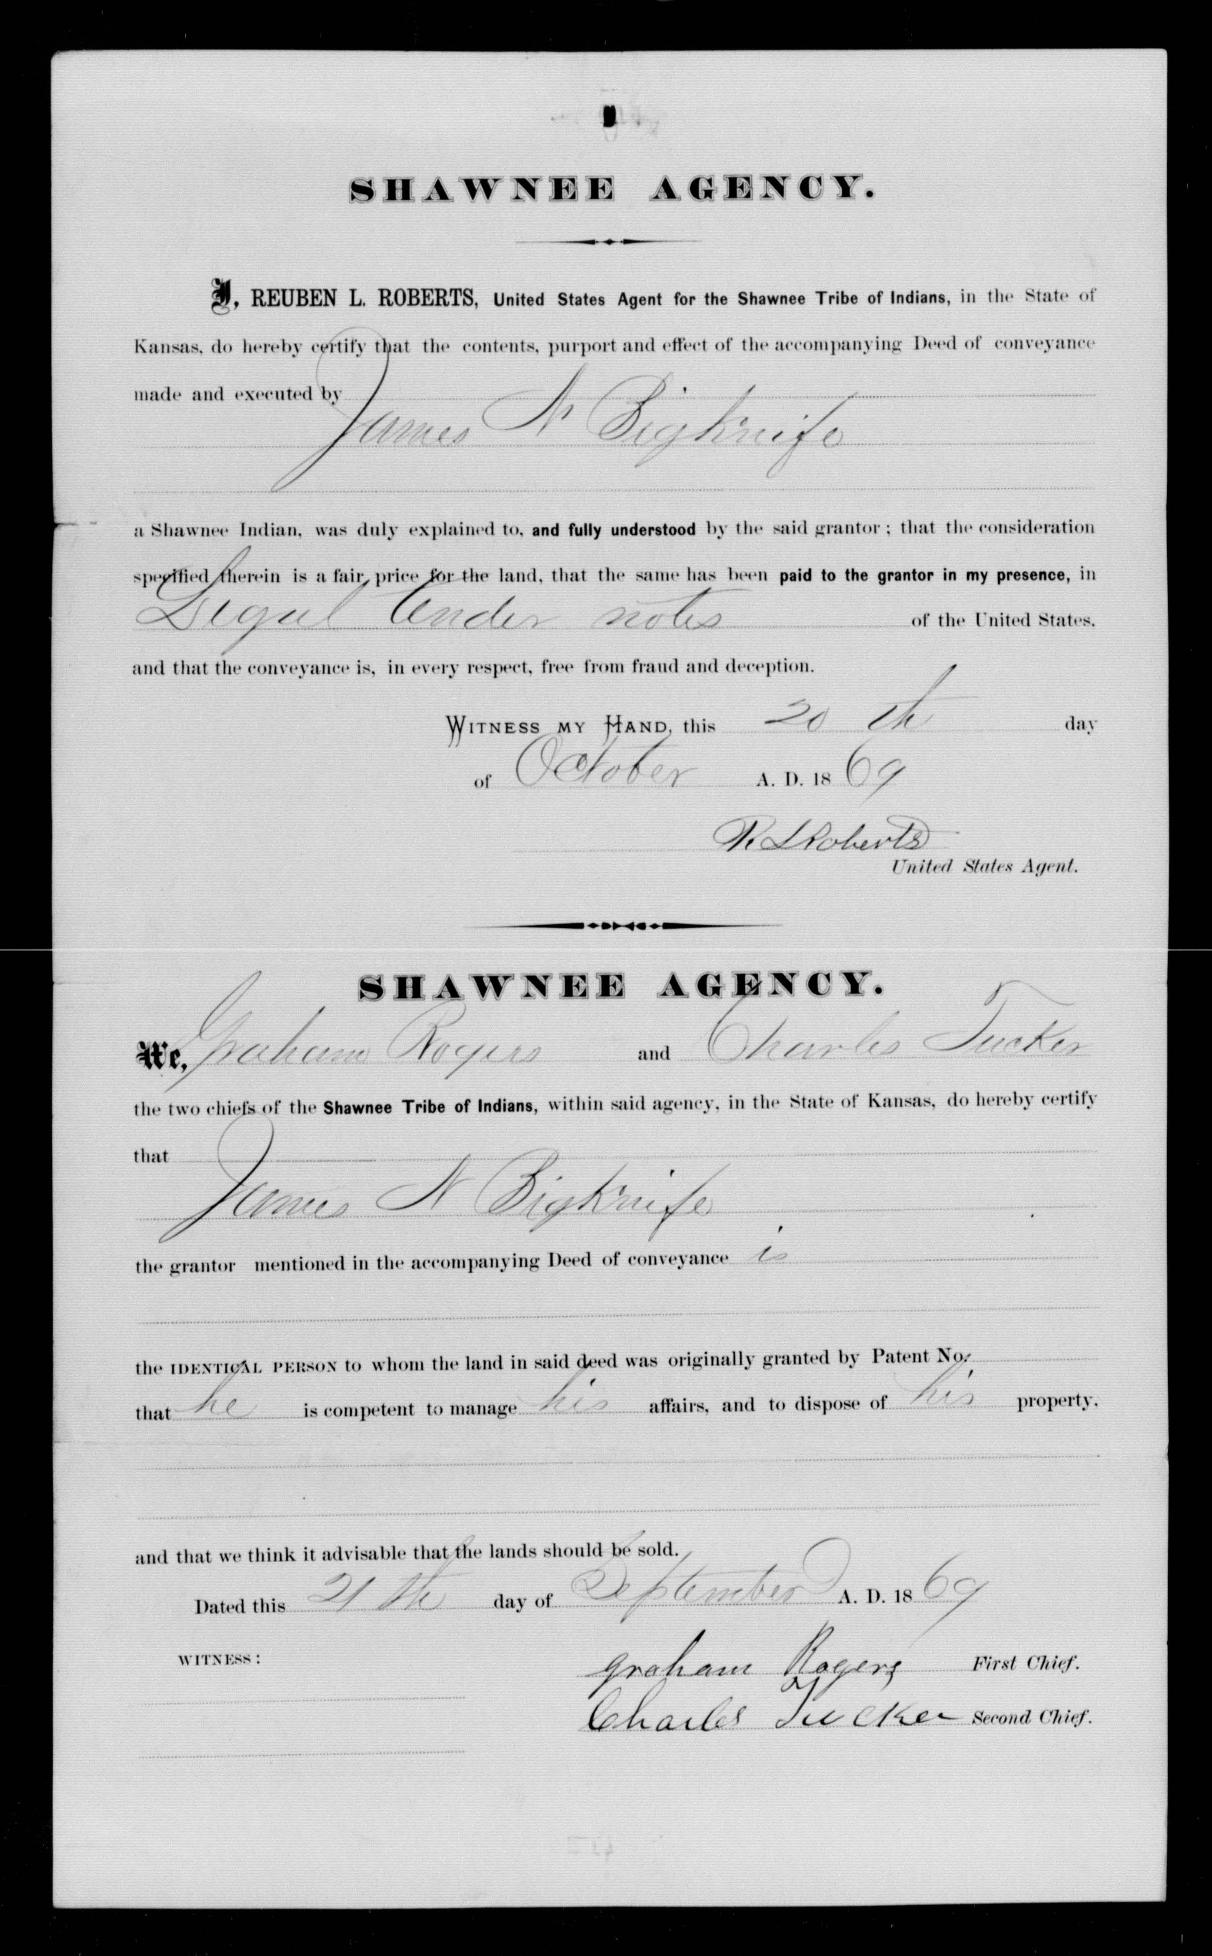 SHAWNEE AGENCY.
I, REUBEN L. ROBERTS, United States Agent for the Shawnee Tribe of Indians, in the State of
Kansas, do hereby certify that the contents, purport and effect of the accompanying Deed of conveyance
made and executed by
James N Bigknife
a Shawnee Indian, was duly explained to, and fully understood by the said grantor; that the consideration
specified therein is a fair price for the land, that the same has been paid to the grantor in my presence, in
Legal tender notes of the United States.
and that the conveyance is, in every respect, free from fraud and deception.
WITNESS MY HAND, this 20 th day
of October A. D. 1869
R. L Roberts
United States Agent.
SHAWNEE AGENCY.
We, Graham Rogers and Charles Tucker
the two chiefs of the Shawnee Tribe of Indians, within said agency, in the State of Kansas, do hereby certify
that
James N Bigknife
the grantor mentioned in the accompanying Deed of conveyance is
the IDENTICAL PERSON to whom the land in said deed was originally granted by Patent No.
that he is competent to manage his affairs, and to dispose of his property.
and that we think it advisable that the lands should be sold.
Dated this 21 th day of September A. D. 1869
WITNESS:
graham Rogers First Chief.
Charles Tucker Second Chief.